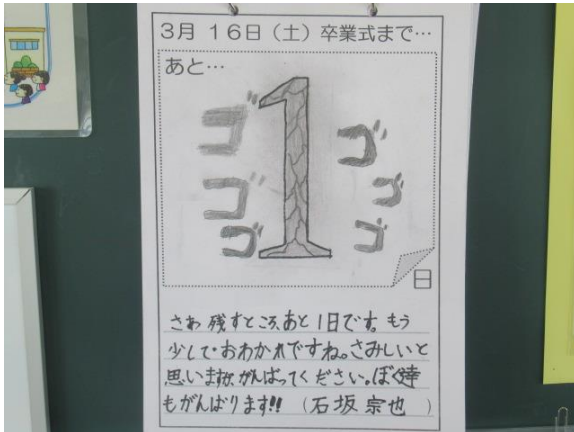 3月 16日（土）卒業式まで…
あと…
1
ゴ ゴ ゴ ゴ ゴ ゴ
日
さあ 残すところ、あと1日です。もう
少しで・おわかれですね。さみしいと
思いますが、がんばってください。ぼく達
もがんばります!!（石坂 宗也）